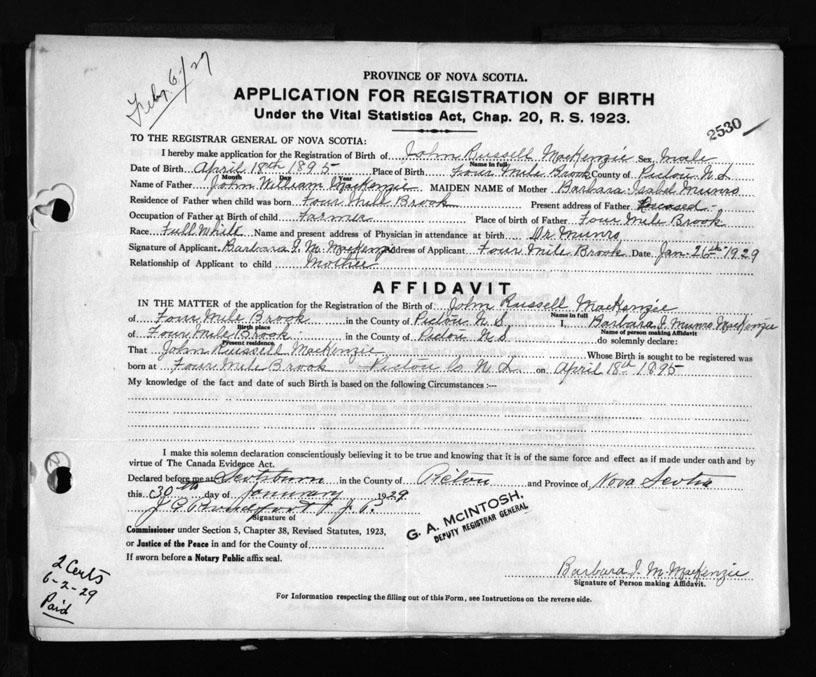 Feby. 6/29
PROVINCE OF NOVA SCOTIA.
APPLICATION FOR REGISTRATION OF BIRTH
Under the Vital Statistics Act, Chap. 20, R. S. 1923.
2530
TO THE REGISTRAR GENERAL OF NOVA SCOTIA:
I hereby make application for the Registration of Birth of John Russell MacKenzie Sex male
Name in full
Date of Birth April 18th 1895 Place of Birth Four Mile Brook County of Pictou N S
Month Day Year
Name of Father John William MacKenzie MAIDEN NAME of Mother Barbara Isabel Munro
Residence of Father when child was born Four Mile Brook Present address of Father Deceased
Occupation of Father at Birth of child Farmer Place of birth of Father Four Mile Brook
Race Full White Name and present address of Physician in attendance at birth Dr Munro
Signature of Applicant Barbara I. M. MacKenzie Address of Applicant Four Mile Brook Date Jan. 26th 1929
Relationship of Applicant to child Mother
AFFIDAVIT
IN THE MATTER of the application for the Registration of the Birth of John Russell MacKenzie
Name in full
of Four Mile Brook in the County of Pictou N S I, Barbara I. Munro MacKenzie
Birth place Name of person making Affidavit
of Four Mile Brook in the County of Pictou N S do solemnly declare:
Present residence
That John Russell MacKenzie Whose Birth is sought to be registered was
born at Four Mile Brook Pictou Co N S on April 18th 1895
My knowledge of the fact and date of such Birth is based on the following Circumstances :—
I make this solemn declaration conscientiously believing it to be true and knowing that it is of the same force and effect as if made under oath and by
virtue of The Canada Evidence Act.
Declared before me at Scotsburn in the County of Pictou and Province of Nova Scotia
this 30th day of January 1929
J. P.
Signature of
Commissioner under Section 5, Chapter 38, Revised Statutes, 1923,
or Justice of the Peace in and for the County of
If sworn before a Notary Public affix seal.
G. A. MCINTOSH,
DEPUTY REGISTRAR GENERAL
Barbara I. M. MacKenzie
Signature of Person making Affidavit.
For Information respecting the filling out of this Form, see Instructions on the reverse side.
2 Certs
6-2-29
Paid